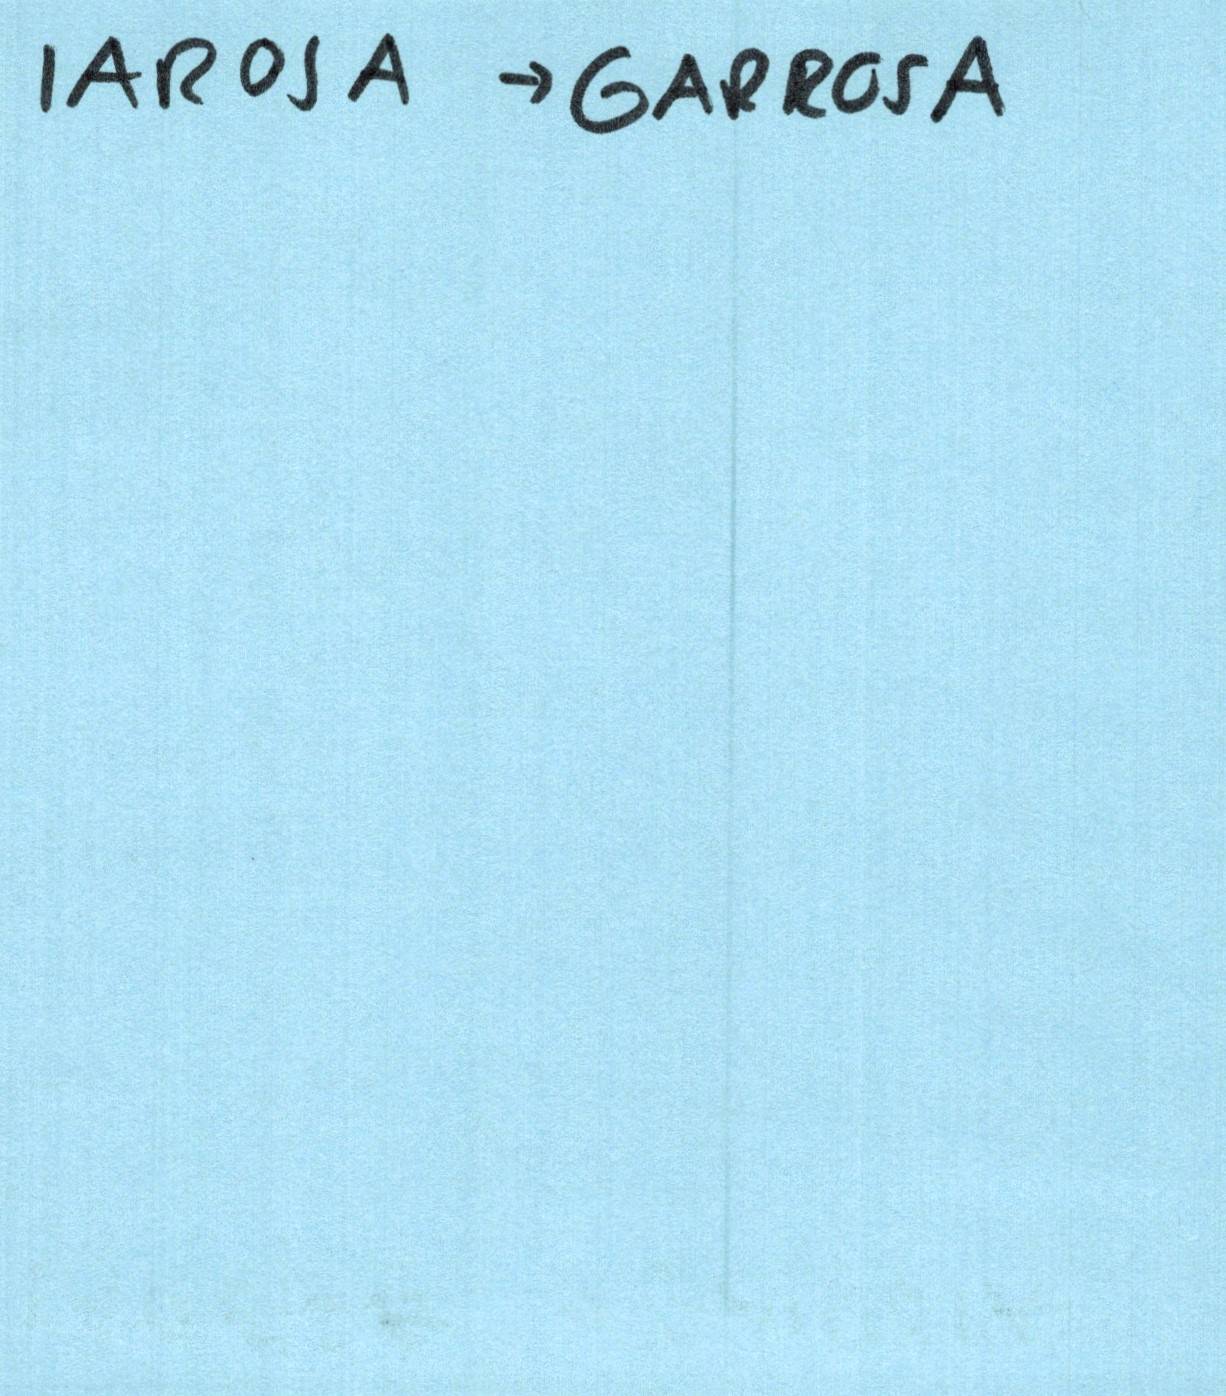 IAROSA → GARROSA